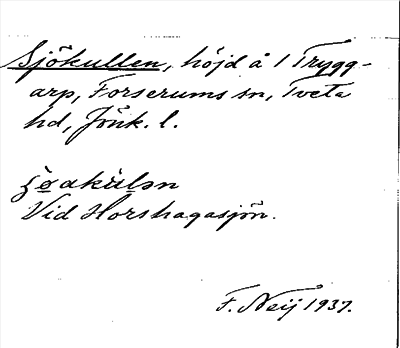 Sjökullen, höjd å 1 Trygg-
arp, Forserums sn, Tveta
hd, Jönk. l.
Vid Horshagasjön.
F. Neij 1937.